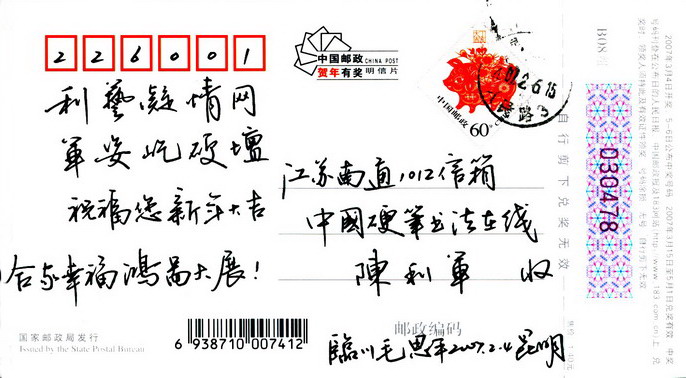 226001
中国邮政 CHINA POST
贺年有奖 明信片
中国邮政
60分
2007.2.6.15
利藝凝情网
軍姿屹硬壇
祝福您新年大吉
合家幸福鴻啚大展!
江苏南通1012信箱
中國硬筆书法在线
陳利軍 收
国家邮政局发行
Issued by the State Postal Bureau
6 938710 007412
邮政编码
臨川毛思平2007.2.4昆明
自行剪下兑奖无效
B08
030478